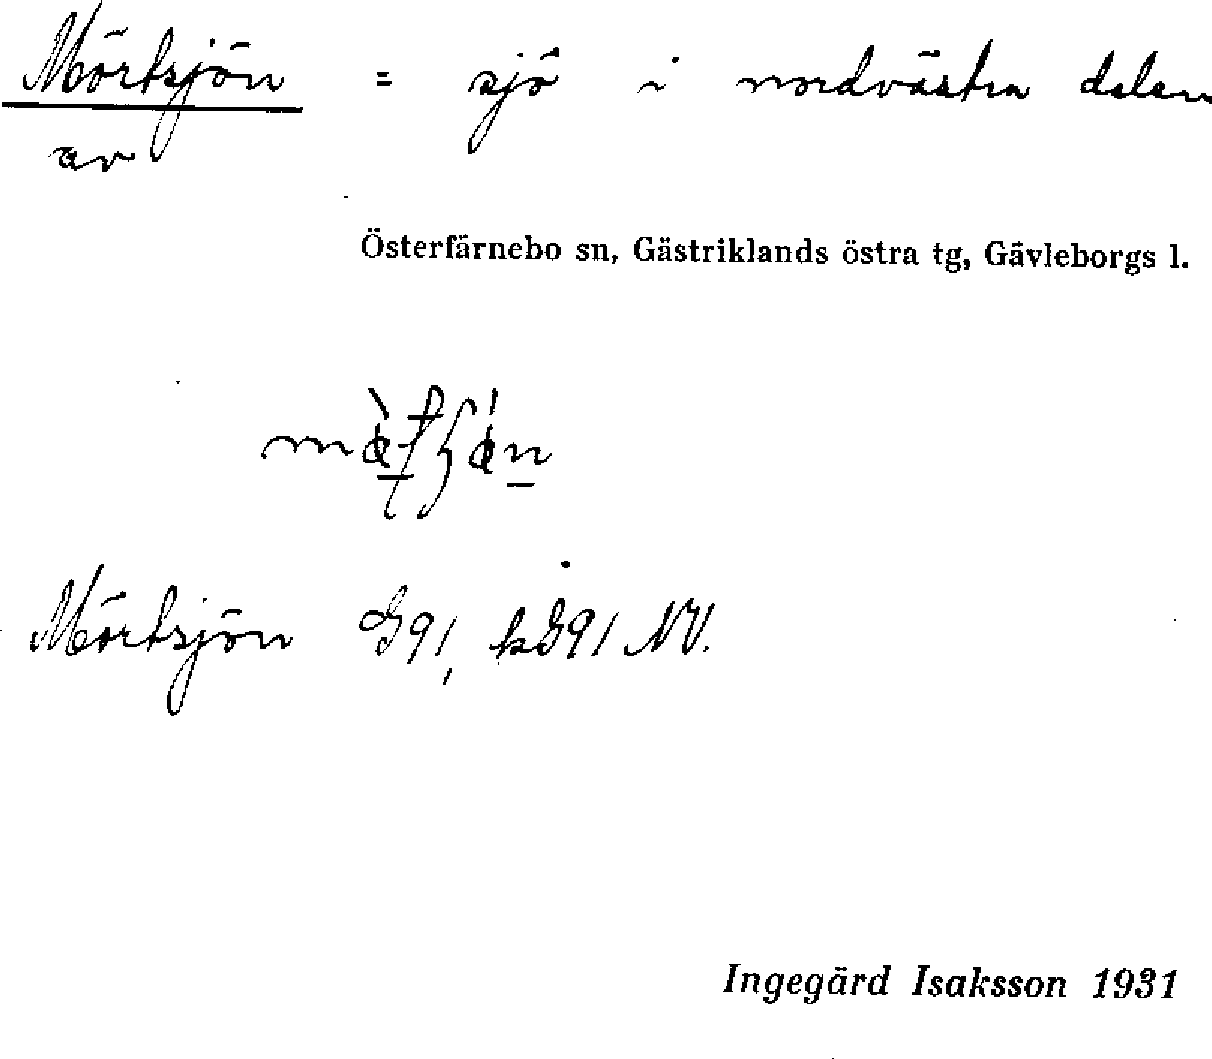 Mörtsjön = sjö i nordvästra delen
av
Österfärnebo sn, Gästriklands östra tg, Gävleborgs l.
Mörtsjön G91, kG91 NV.
Ingegärd Isaksson 1931